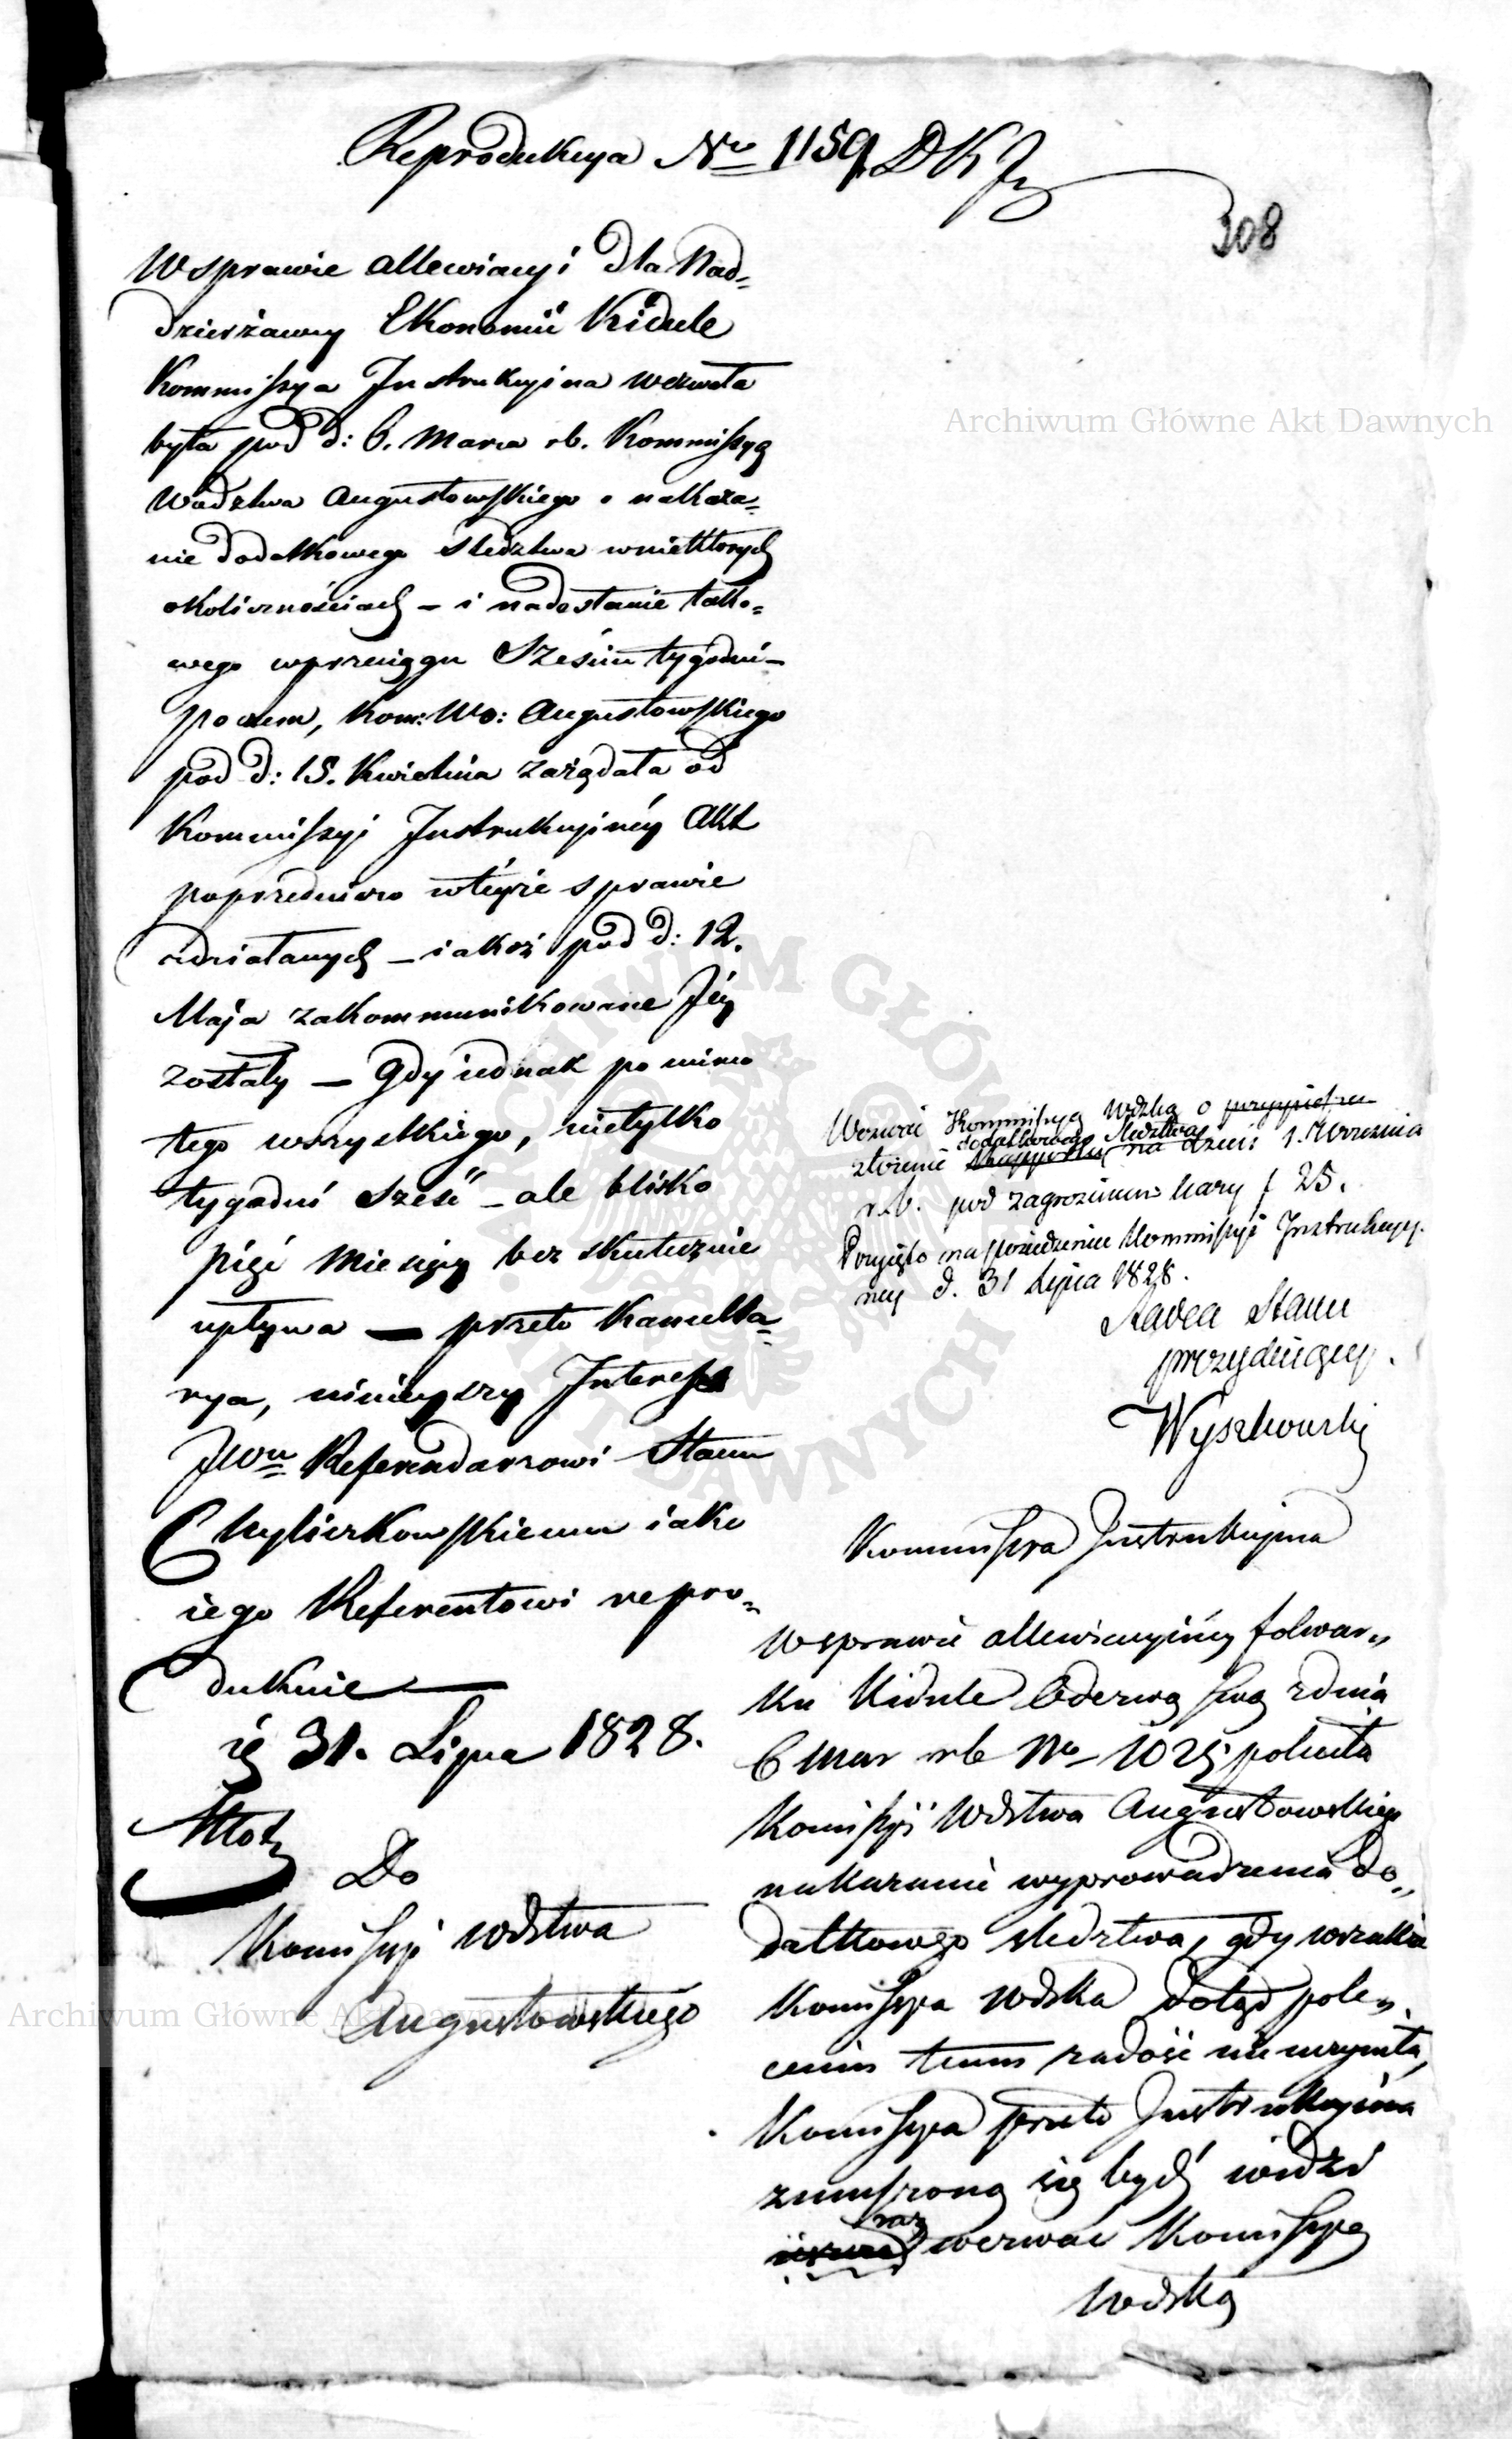 Reprodukcya Nro 1159 DKJ
308
W sprawie allewiacyi dla Nad=
dzierżawcy Ekonomii Kidule
Kommissya Instrukcyina wezwała
była pod d: 6. Marca rb. Kommissyą
Wdztwa Augustowskiego o nakaza=
nie dodatkowego śledztwa w niektórych
okolicznościach – i nadesłanie tako=
wego w przeciągu Sześciu tygodni –
poczem, Kom: Wo: Augustowskiego
pod d: 15. Kwietnia zażądała od
Kommissyi Instrukcyiney Akt
poprzedniczo w teyże sprawie
zdziałanych – iakoż pod d: 12.
Maja zakommunikowane Jéy
zostały — Gdy iednak po mimo
tego wszystkiego, nietylko
tygodni sześć – ale blisko
pięć miesięcy bez skutecznie
upływa — przeto Kancella=
rya, ninieyszy Interess
JWu Referendarzowi Stanu
Chyliczkowskiemu iako
iego Referentowi repro=
dukuie —
31. Lipca 1828.
Do
Komissyi Wdztwa
Augustowskiego
Wezwać Kommissyą Wdzką o
dodatkowego śledztwa
złożenie na dzień 1. Września
r.b. pod zagrożeniem kary f 25.
Przyięto na posiedzeniu Kommissyi Instrukcyi-
ney d. 31 Lipca 1828.
Radca Stanu
prezyduiący.
Wyszkowski
Kommissya Instrukcyina
W sprawie allewiacyiney folwar=
ku Kidule Odezwą swą z dnia
6 Mar rb No 1025 poleciła
Komissyi Wdztwa Augustowskiego
nakazanie wyprowadzenia do=
datkowego śledztwa, gdy wszakże
Komissya Wdzka dotąd pole=
ceniu temu zadość nie uczyniła,
Komissya przeto Instrukcyina
zmuszoną się bydź widzi
raz
wezwać Komissyą
Wdzką
Archiwum Główne Akt Dawnych
Archiwum Główne Akt Dawnych
ARCHIWUM GŁÓWNE AKT DAWNYCH